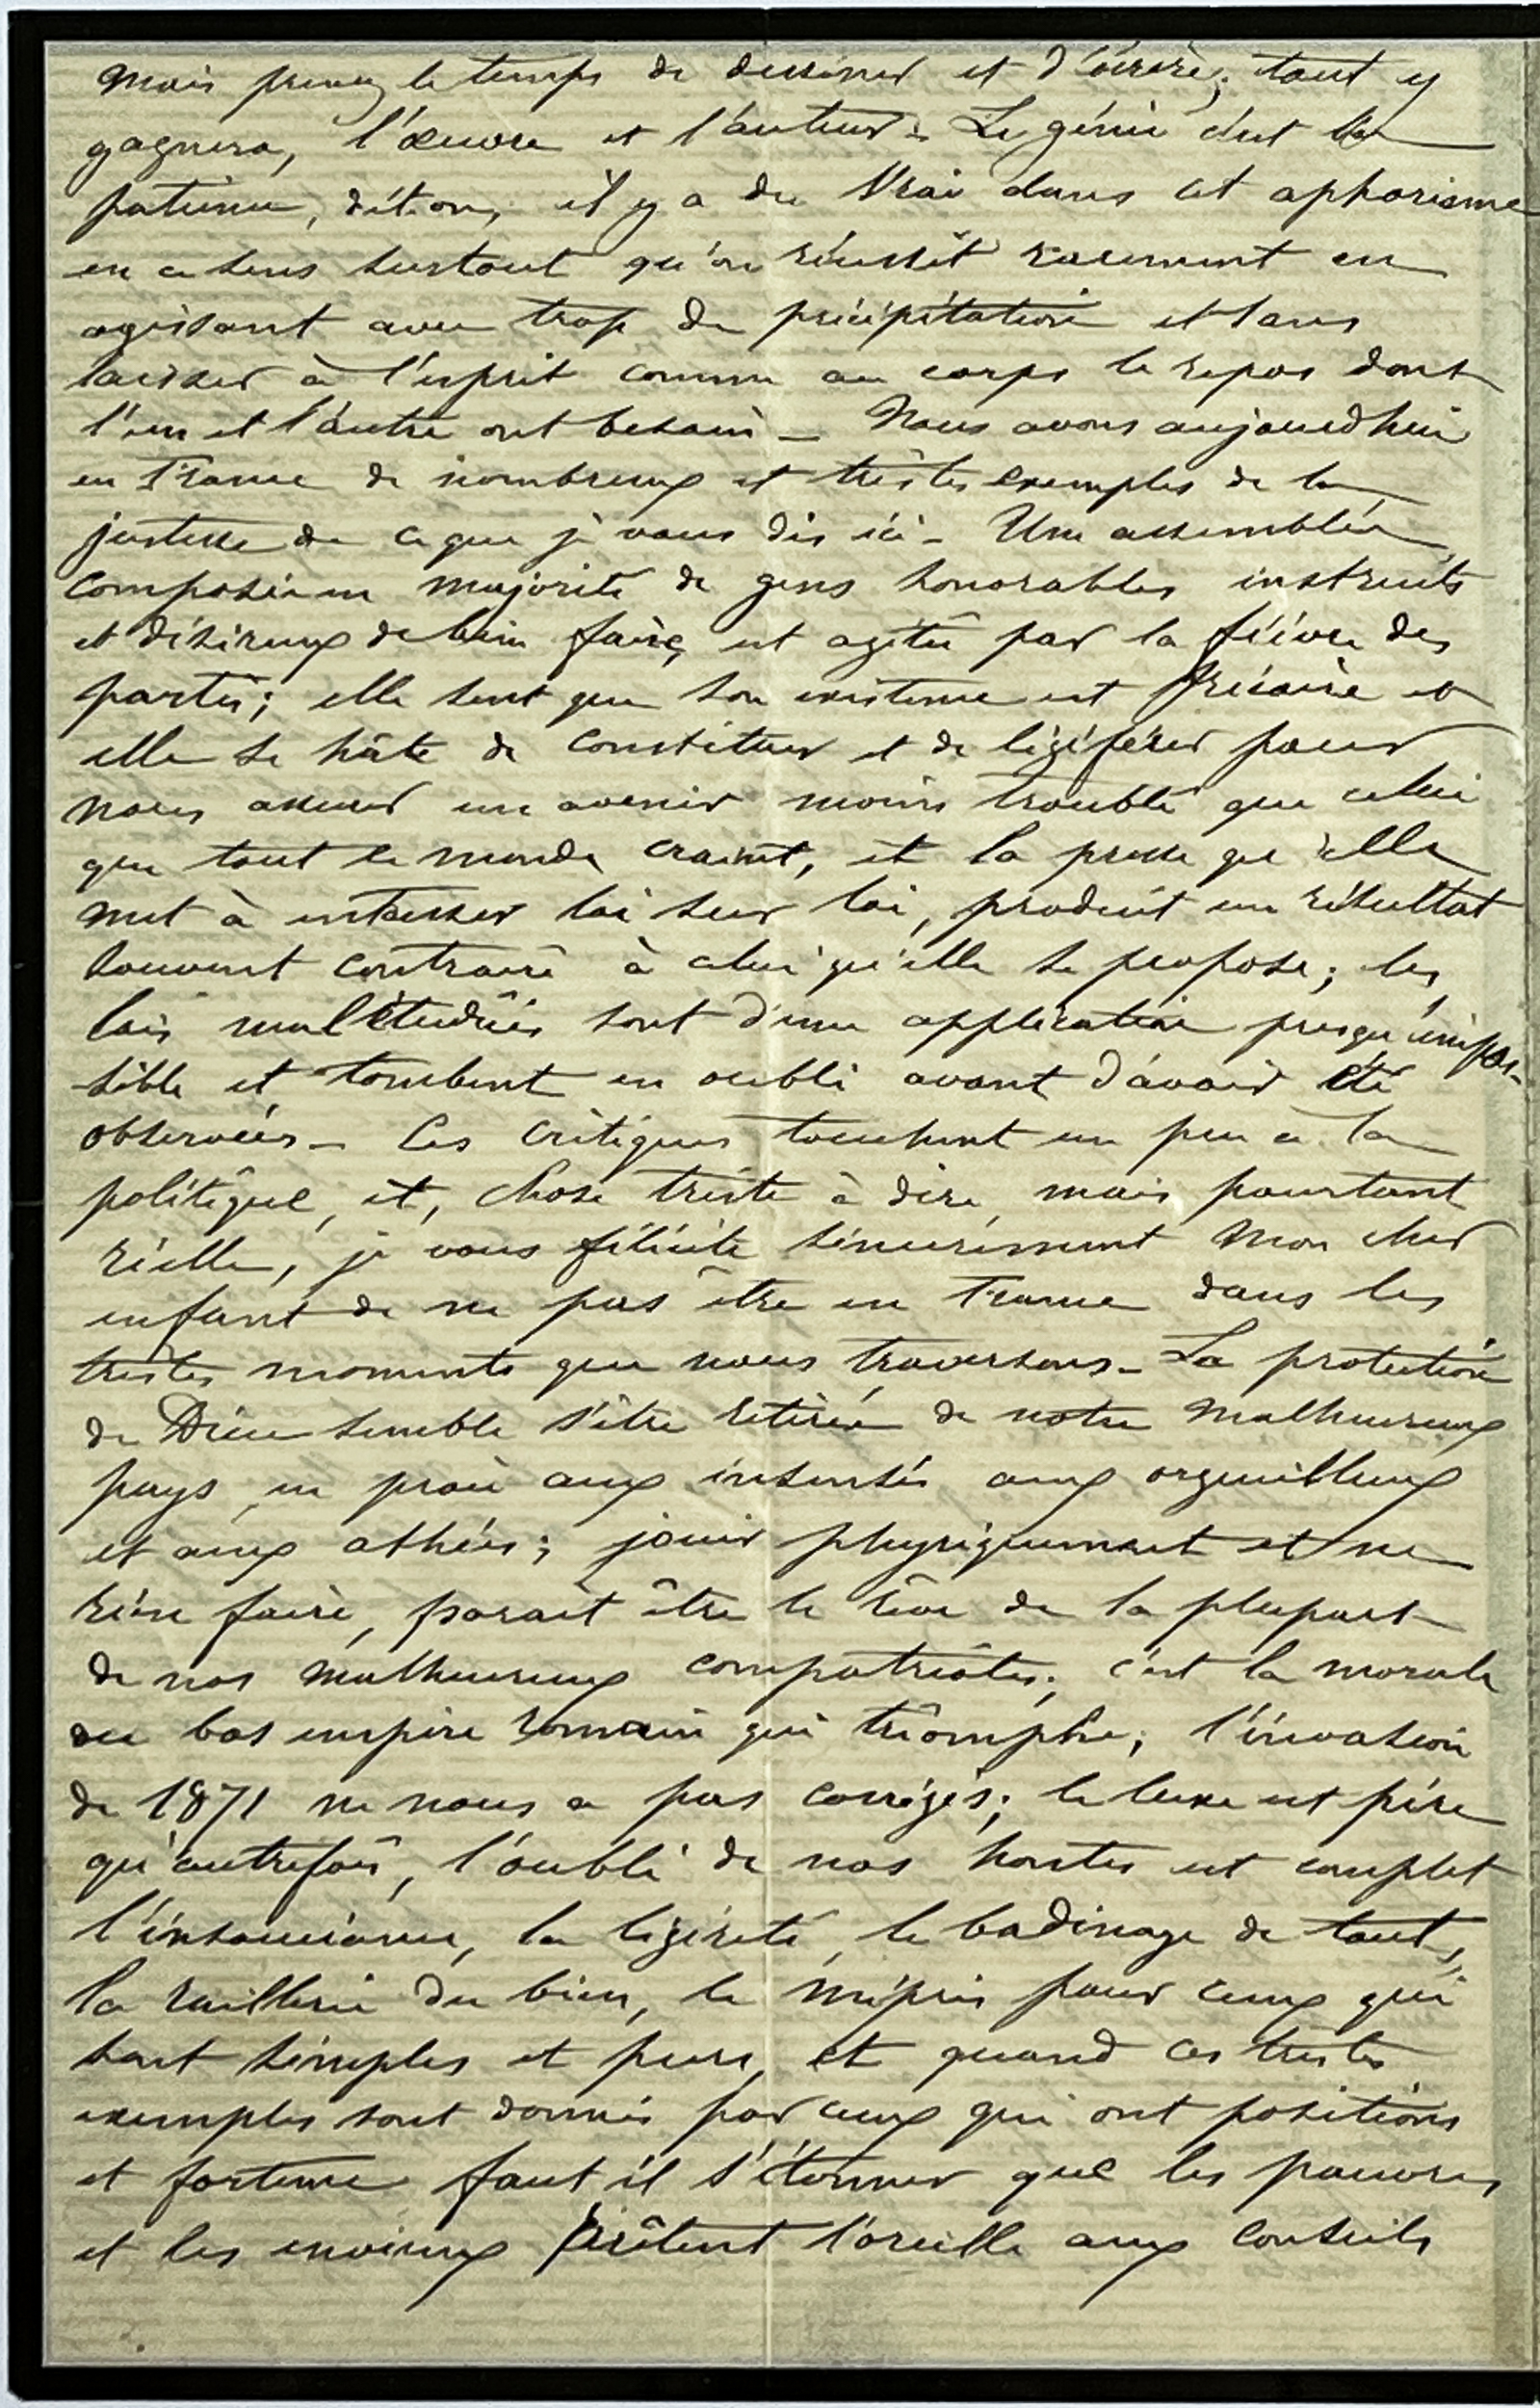 Mais prenez le temps de dessiner et d'écrire; tout y
gagnera, l'œuvre et l'auteur. Le génie c'est la
patience, dit-on, il y a du vrai dans cet aphorisme
en ce sens surtout qu'on réussit rarement en
agissant avec trop de précipitation et sans
laisser à l'esprit comme au corps le repos dont
l'un et l'autre ont besoin _ Nous avons aujourd'hui
en France de nombreux et tristes exemples de la
justesse de ce que je vous dis ici _ Une assemblée
composée en majorité de gens honorables instruits
et désireux de bien faire, est agitée par la fièvre des
partis; elle sent que son existence est précaire et
elle se hâte de constituer et de légiférer pour
nous assurer un avenir moins troublé que celui
que tout le monde craint, et la presse qu'elle
met à entasser loi sur loi, produit un résultat
souvent contraire à celui qu'elle se propose; les
lois mal étudiées sont d'une application presqu'impos-
sible et tombent en oubli avant d'avoir été
observées _ Ces critiques touchent un peu à la
politique, et, chose triste à dire mais pourtant
réelle, je vous félicite sincèrement mon cher
enfant de ne pas être en France dans les
tristes moments que nous traversons _ La protection
de Dieu semble s'être retirée de notre malheureux
pays en proie aux insensés aux orgueilleux
et aux athées; jouir physiquement et ne
rien faire, parait être le rêve de la plupart
de nos malheureux compatriotes; c'est la morale
du bas empire romain qui triomphe; l'invasion
de 1871 ne nous a pas corrigés; le luxe est pire
qu'autrefois, l'oubli de nos hontes est complet
l'insouciance, la légèreté, le badinage de tout,
la raillerie du bien, le mépris pour ceux qui
sont simples et purs, et quand ces tristes
exemples sont donnés par ceux qui ont positions
et fortune faut il s'étonner que les pauvres
et les envieux prêtent l'oreille aux conseils